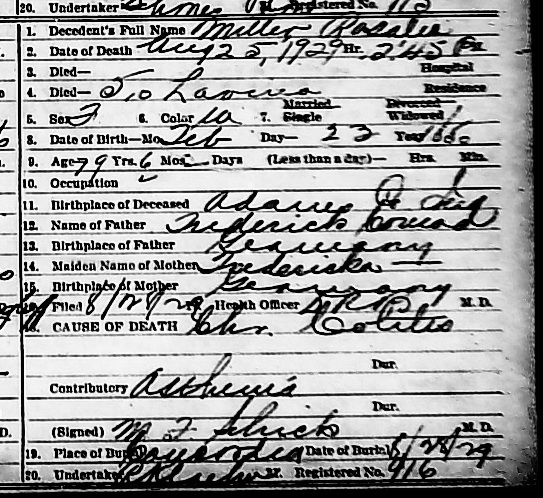 20. Undertaker Registered No. 115
1. Decedent's Full Name Miller Rosalie
2. Date of Death Aug 25, 1929 Hr. 2:45 P.M.
3. Died— Hospital
4. Died— 510 Lavina Residence
Married Divorced
5. Sex F 6. Color W 7. Single Widowed /
8. Date of Birth—Mo. Feb Day— 23 Year
9. Age 79 Yrs. 6 Mos. 2 Days (Less than a day)— Hrs. Min.
10. Occupation
11. Birthplace of Deceased Adams Co Ind
12. Name of Father Frederick Conrad
13. Birthplace of Father Germany
14. Maiden Name of Mother Fredericka —
15. Birthplace of Mother Germany
Filed 8/28/29 Health Officer M. D.
CAUSE OF DEATH Chr. Colitis
Dur.
Contributory Asthenia
Dur.
(Signed) M. F. Schick M. D.
19. Place of Burial Date of Burial 8/28/29
20. Undertaker M. Registered No. 916